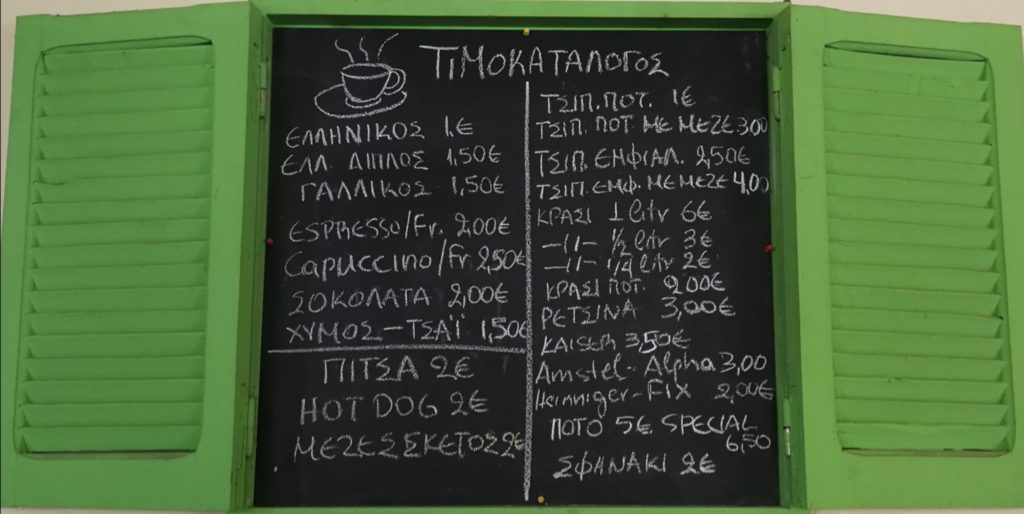 ΤΙΜΟΚΑΤΑΛΟΓΟΣ
ΕΛΛΗΝΙΚΟΣ 1,€
ΕΛΛ. ΔΙΠΛΟΣ 1,50€
ΓΑΛΛΙΚΟΣ 1,50€
ESPRESSO/Fr. 2,00€
Capuccino/Fr 2,50€
ΣΟΚΟΛΑΤΑ 2,00€
ΧΥΜΟΣ-ΤΣΑΪ 1,50€
ΠΙΤΣΑ 2€
HOT DOG 2€
ΜΕΖΕΣ ΣΚΕΤΟΣ 2€
ΤΣΙΠ. ΠΟΤ. 1€
ΤΣΙΠ. ΠΟΤ ΜΕ ΜΕΖΕ 3,00
ΤΣΙΠ. ΕΜΦΙΑΛ. 2,50€
ΤΣΙΠ. ΕΜΦ. ΜΕ ΜΕΖΕ 4,00
ΚΡΑΣΙ 1 litr 6€
-//- ½ litr 3€
-//- ¼ litr 2€
ΚΡΑΣΙ ΠΟΤ. 2,00€
ΡΕΤΣΙΝΑ 3,00€
KAISER 3,50€
Amstel-Alpha 3,00
Henniger-FIX 2,00€
ΠΟΤΟ 5€ SPECIAL
6,50
ΣΦΗΝΑΚΙ 2€